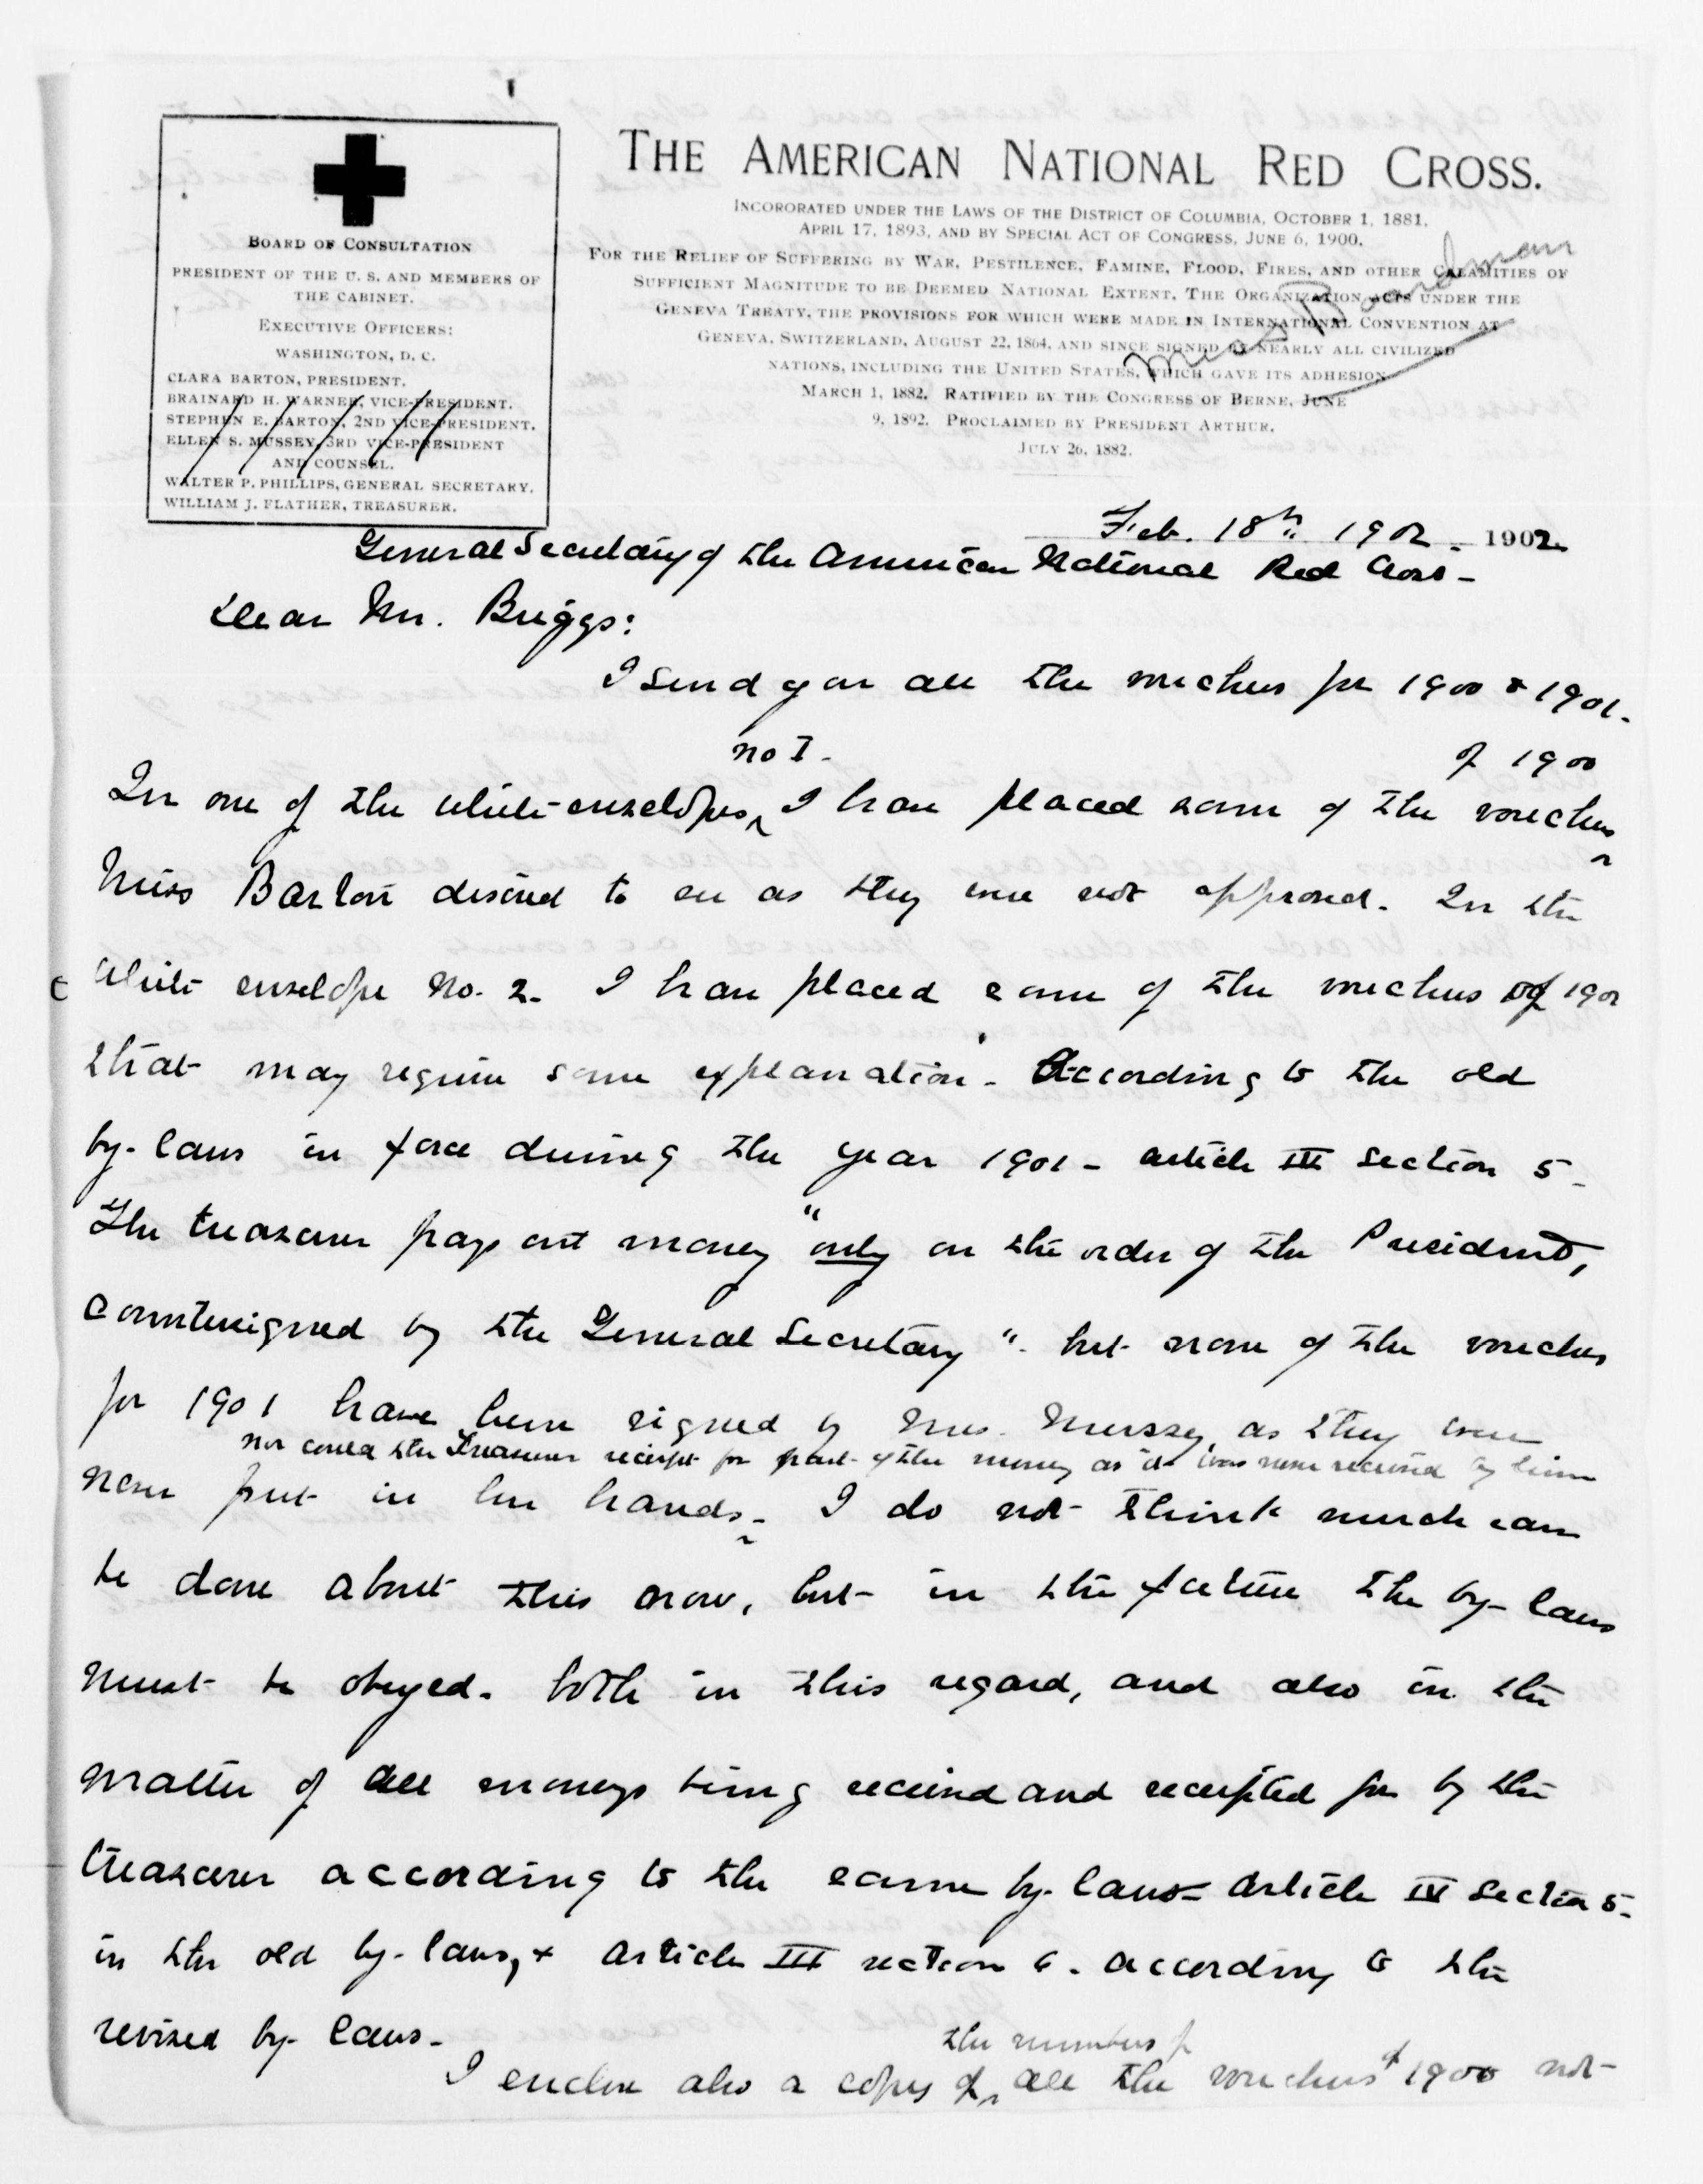 BOARD OF CONSULTATION
PRESIDENT OF THE U. S. AND MEMBERS OF
THE CABINET.
EXECUTIVE OFFICERS:
WASHINGTON, D. C.
CLARA BARTON, PRESIDENT.
BRAINARD H. WARNER, VICE-PRESIDENT.
STEPHEN E. BARTON, 2ND VICE-PRESIDENT.
ELLEN S. MUSSEY, 3RD VICE-PRESIDENT
AND COUNSEL.
WALTER P. PHILLIPS, GENERAL SECRETARY.
WILLIAM J. FLATHER, TREASURER.
THE AMERICAN NATIONAL RED CROSS.
INCORORATED UNDER THE LAWS OF THE DISTRICT OF COLUMBIA, OCTOBER 1, 1881,
APRIL 17, 1893, AND BY SPECIAL ACT OF CONGRESS, JUNE 6, 1900.
FOR THE RELIEF OF SUFFERING BY WAR, PESTILENCE, FAMINE, FLOOD, FIRES, AND OTHER CALAMITIES OF
SUFFICIENT MAGNITUDE TO BE DEEMED NATIONAL EXTENT. THE ORGANIZATION ACTS UNDER THE
GENEVA TREATY, THE PROVISIONS FOR WHICH WERE MADE IN INTERNATIONAL CONVENTION AT
GENEVA, SWITZERLAND, AUGUST 22, 1864, AND SINCE SIGNED BY NEARLY ALL CIVILIZED
NATIONS, INCLUDING THE UNITED STATES, WHICH GAVE ITS ADHESION
MARCH 1, 1882. RATIFIED BY THE CONGRESS OF BERNE, JUNE
9, 1892. PROCLAIMED BY PRESIDENT ARTHUR,
JULY 26, 1882.
Miss Boardman
Feb. 18th 1902. 1902
General Secretary of the American National Red Cross-
Dear Mr. Briggs:
I send you all the vouchers for 1900 & 1901.
no I. of 1900
In one of the white envelopes, I have placed some of the vouchers
Miss Barton desired to see as they were not approved. In the
white envelope No. 2. I have placed some of the vouchers of 1901
that may require some explanation. According to the old
by-laws in force during the year 1901 - article III section 5-
The treasurer pays out money "only on the order of the President,
countersigned by the General Secretary". but none of the vouchers
for 1901 have been signed by Mrs. Mussey, as they were
nor could the Treasurer receipt for part of the money as it was never received by him
never put in her hands. I do not think much can
be done about this now, but in the future the by-laws
must be obeyed. both in this regard, and also in the
matter of all moneys being received and receipted for by the
treasurer according to the same by-laws- Article III Section 5-
in the old by-laws, & Article III section 6. according to the
revised by-laws-
the numbers of
I enclose also a copy of all the vouchers of 1900 not-